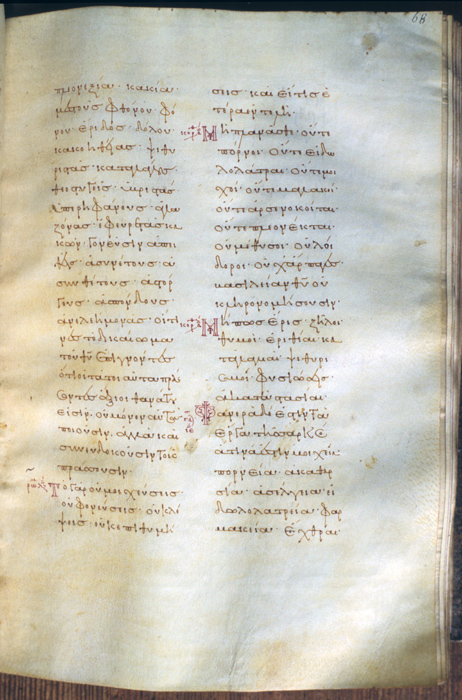 68
πλεονεξία· κακία·
μεστοὺς φθόνου· φό
νου· ἔριδος· δόλου·
κακοηθείας· ψιθυ
ριστὰς· καταλάλους·
θεοστυγεῖς· ὑβριστάς·
ὑπερηφάνους· ἀλα
ζόνας· ἐφευρετὰς κα
κῶν· γονεῦσιν ἀπει
θεῖς· ἀσυνέτους· ἀ
συνθέτους· ἀστόρ
γους· ἀσπόνδους·
ἀνελεήμονας· οἵτι
νες τὸ δικαίωμα
τοῦ θυ ἐπιγνόντες
ὅτι οἱ τὰ τοιαῦτα πράσ
σοντες ἄξιοι θανάτου
εἰσίν· οὐ μόνον αὐτὰ
ποιοῦσιν· ἀλλὰ καὶ
συνευδοκοῦσιν τοῖς
πράσσουσιν·
Τὸ γὰρ οὐ μοιχεύσεις
οὐ φονεύσεις· οὐ κλέ
ψεις· οὐκ ἐπιθυμή
σεις· καὶ εἴ τις ἑ
τέρα ἐντολή·
Μὴ πλανᾶσθε· οὔτε
πόρνοι· οὔτε εἰδω
λολάτραι· οὔτε μοι
χοί· οὔτε μαλακοί·
οὔτε ἀρσενοκοῖται·
οὔτε πλεονέκται·
οὐ μέθυσοι· οὐ λοί
δοροι· οὐχ ἅρπαγες·
βασιλείαν θυ οὐ
κληρονομήσουσιν·
Μή πως ἔρις· ζῆλοι·
θυμοί· ἐριθεῖαι· κα
ταλαλιαί· ψιθυρι
σμοί· φυσιώσεις·
ἀκαταστασίαι·
Φανερὰ δέ ἐστιν τὰ
ἔργα τῆς σαρκός·
ἅτινά ἐστιν μοιχεία
πορνεία· ἀκαθαρ
σία· ἀσέλγεια· εἰ
δωλολατρεία· φαρ
μακεία· ἔχθραι·